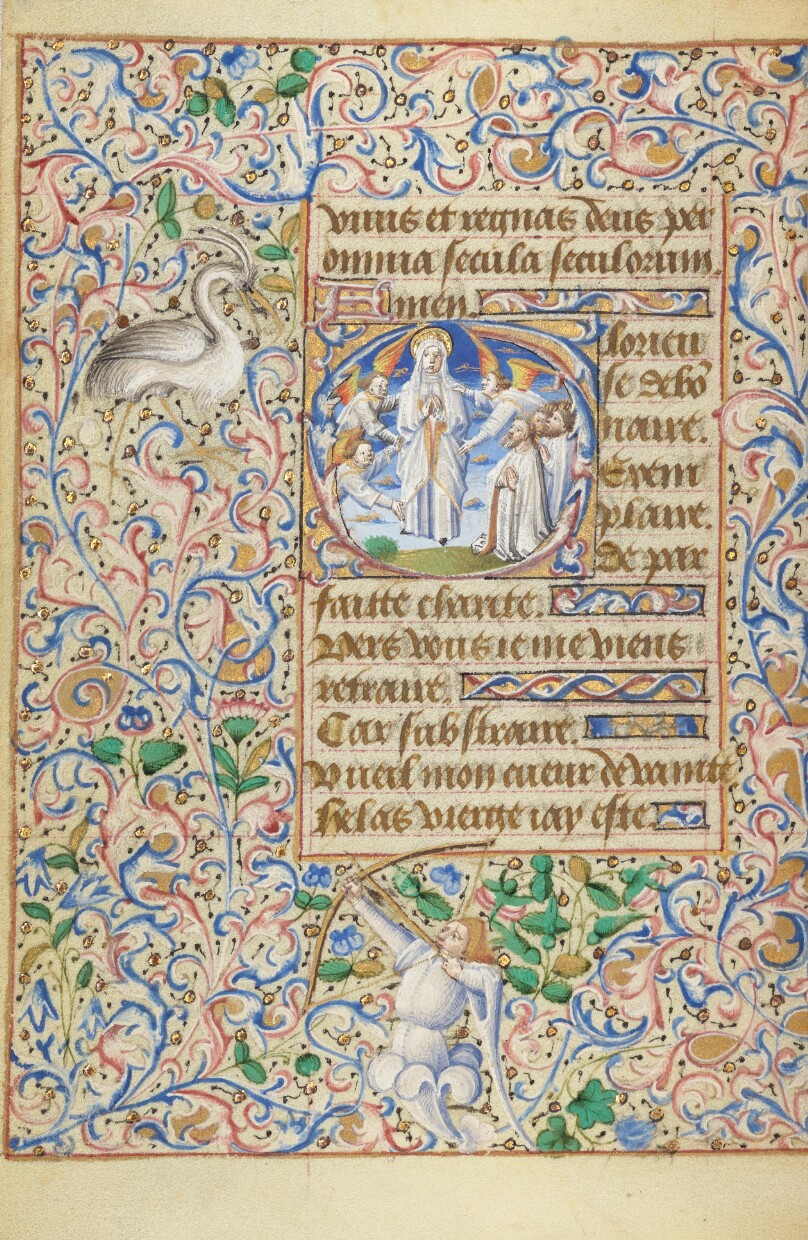 viuis et regnas deus per
omnia secula seculorum.
Amen.
Glorieu
se debō
naire.
Exem
plaire.
De par
faitte charite.
Vers vous ie me viens
retraire.
Car substraire.
Vueil mon cueur de vanite
helas vierge iay este